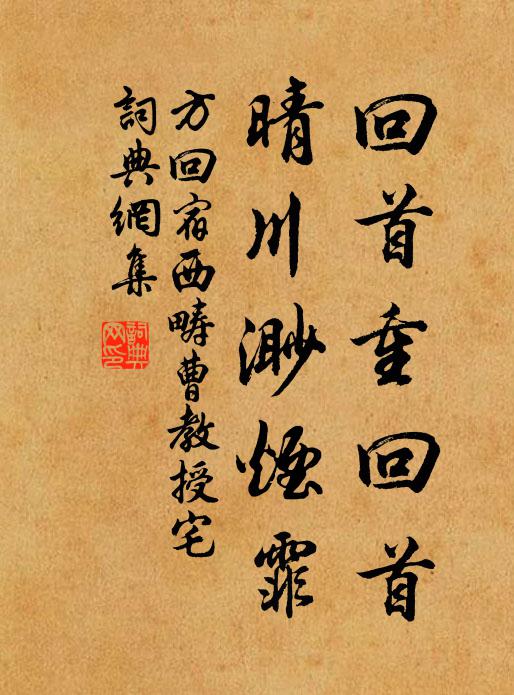 回首重回首
晴川渺煙霏
方回宿西疇曹教授宅
詞典網集
詞典网印